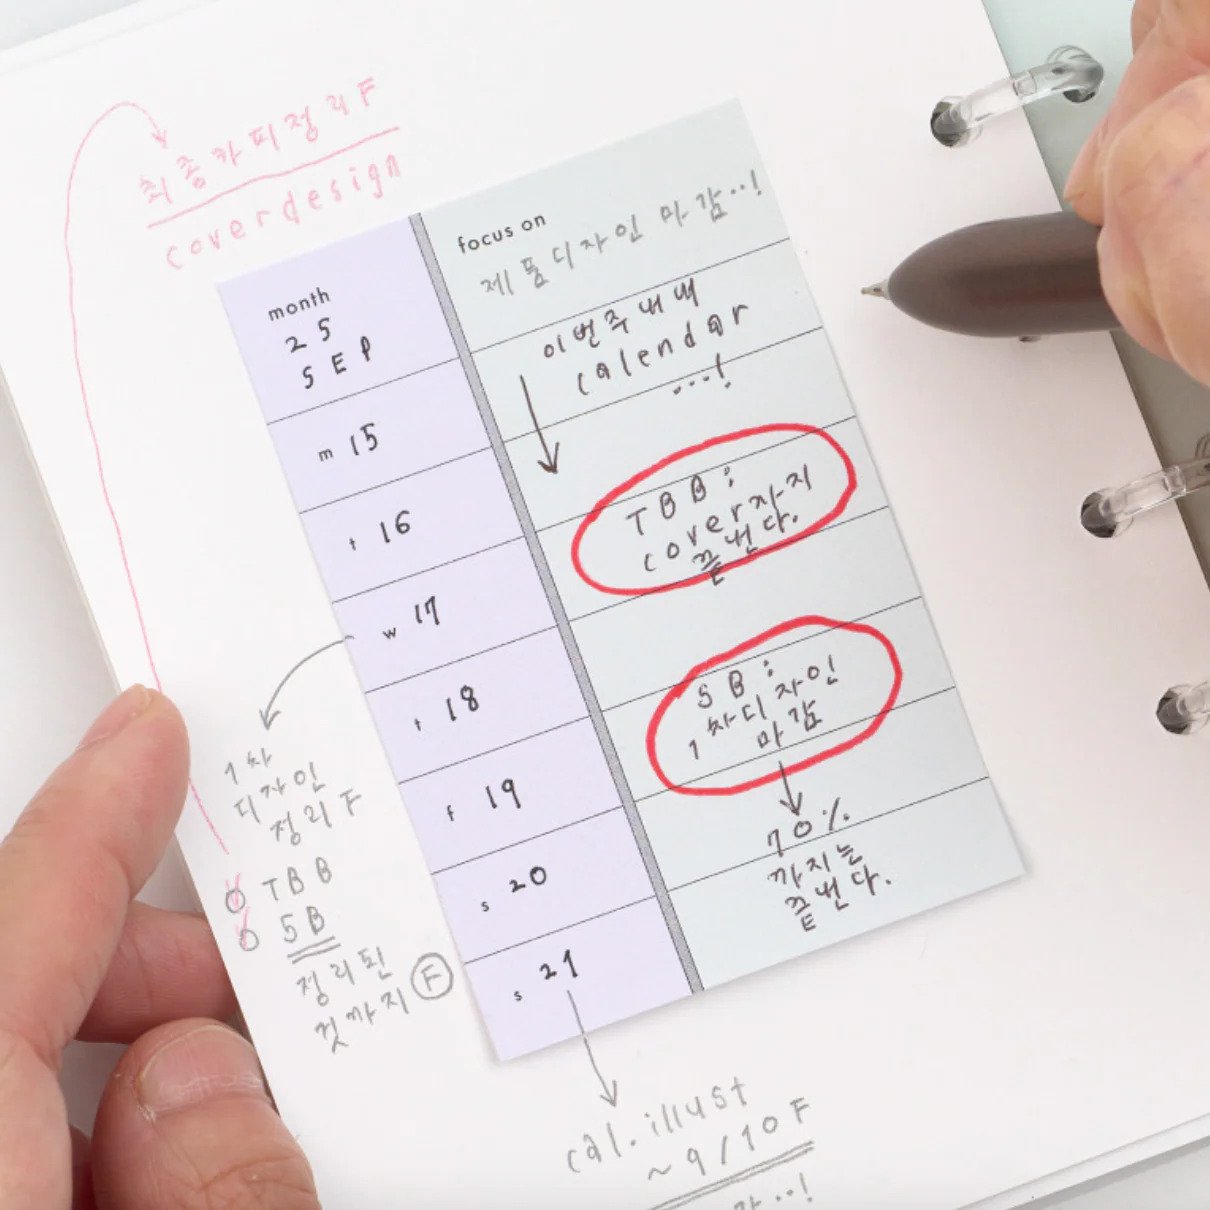 최종카피정리F
coverdesign
focus on
제품디자인 마감..!
month
25
SEP
이번주내내
calendar
...!
m 15
t 16
TBB:
cover까지
끝낸다.
w 17
t 18
SB:
1차디자인
마감
f 19
70%
까지는
끝낸다.
s 20
s 21
1차
디자인
정리F
TBB
SB
정리된
것까지 F
cal.illust
~9/10F
감..!